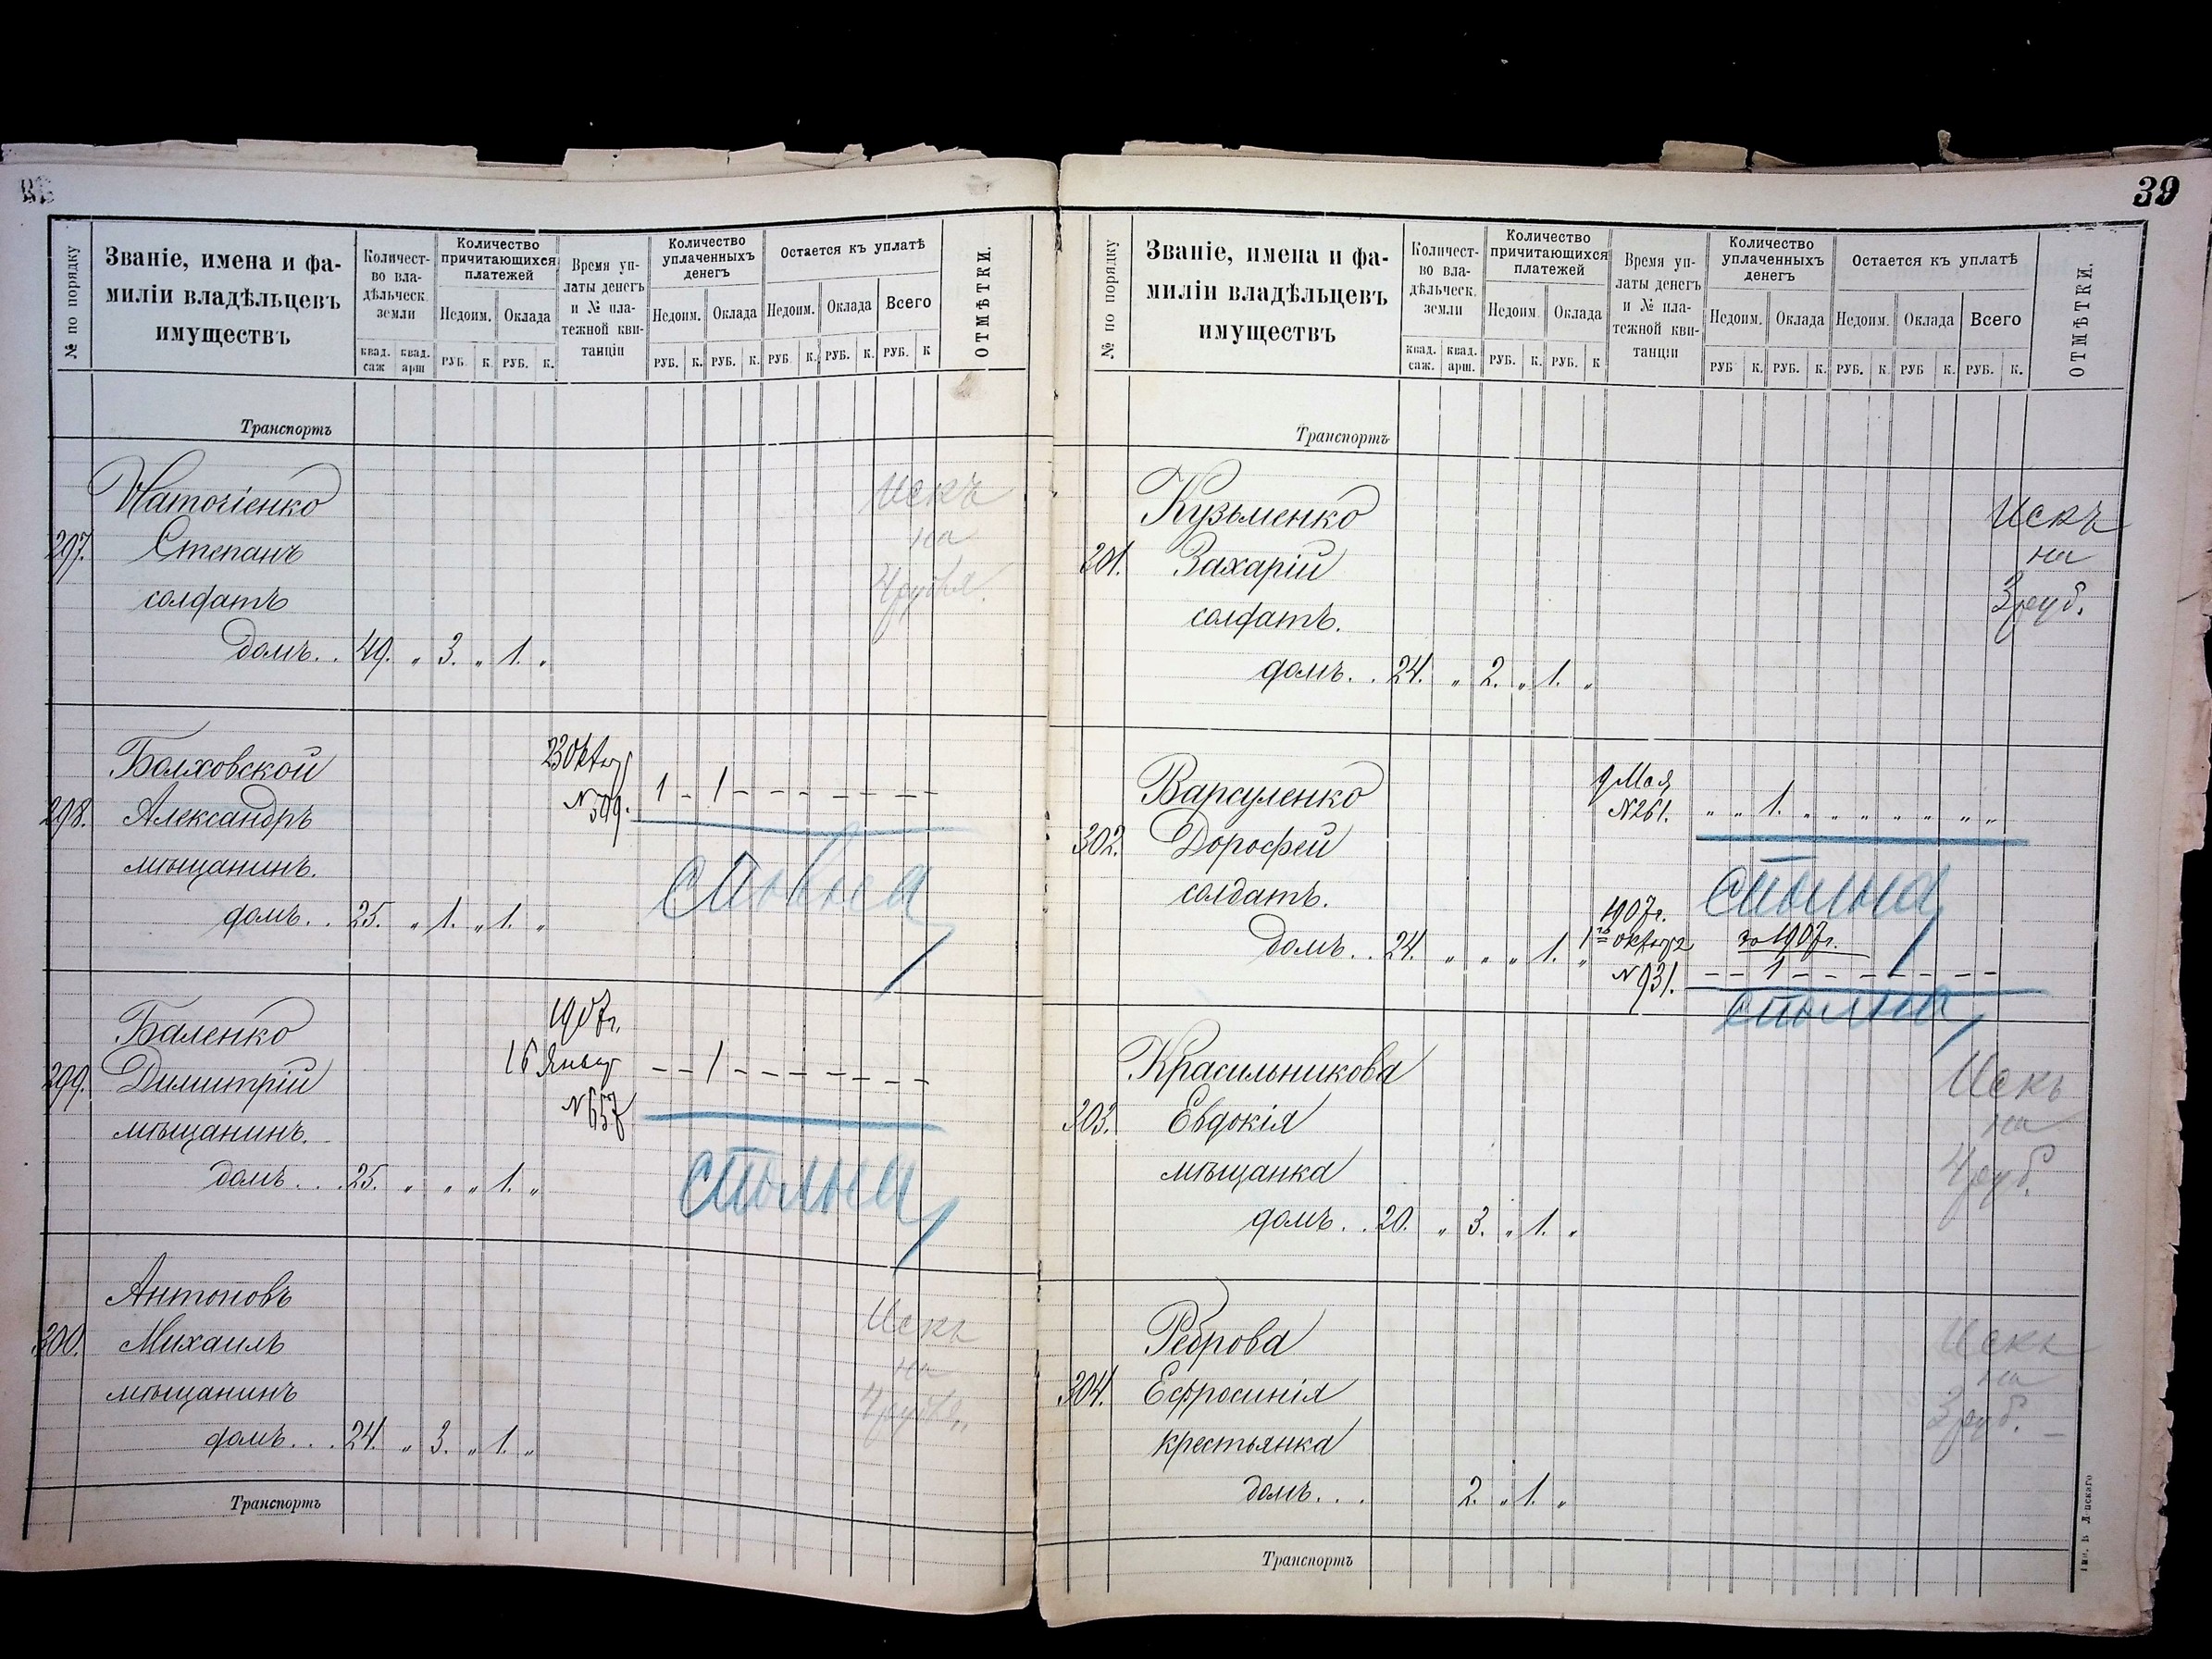 39
№ по порядку
Званіе, имена и фа-
миліи владѣльцевъ
имуществъ
Количест-
во вла-
дѣльческ.
земли
квад. саж
квад. арш
Количество
причитающихся
платежей
Недоим. Оклада
РУБ. К. РУБ. К.
Время уп-
латы денегъ
и № пла-
тежной кви-
танціи
Количество
уплаченныхъ
денегъ
Недоим. Оклада
РУБ. К. РУБ. К.
Остается къ уплатѣ
Недоим. Оклада Всего
РУБ. К. РУБ. К. РУБ. К
ОТМѢТКИ.
Транспортъ
Степанъ
297.
солдатъ
домъ.. 49. „ 3. „ 1. „
Искъ
на
4 рубля.
Болховской
298. Александръ
мѣщанинъ.
домъ.. 25. „ 1. „ 1. „
23 Октяб
N 599.
1 - 1 - - - - - - -
сполна
Баленко
299. Димитрій
мѣщанинъ.
домъ... 25. „ „ „ 1. „
1907г.
16 Январ
N 657
- - 1 - - - - - - -
сполна
Антоновъ
300. Михаилъ
мѣщанинъ
домъ... 24. „ 3. „ 1. „
Искъ
на
4 рубля
Транспортъ
№ по порядку
Званіе, имена и фа-
миліи владѣльцевъ
имуществъ
Количест-
во вла-
дѣльческ.
земли
квад. саж.
квад. арш.
Количество
причитающихся
платежей
Недоим. Оклада
РУБ. К. РУБ. К
Время уп-
латы денегъ
и № пла-
тежной кви-
танціи
Количество
уплаченныхъ
денегъ
Недоим. Оклада
РУБ К. РУБ. К.
Остается къ уплатѣ
Недоим. Оклада Всего
РУБ. К. РУБ К. РУБ. К.
ОТМѢТКИ.
Транспортъ
Кузьменко
301. Захарій
солдатъ.
домъ.. 24. „ 2. „ 1. „
Искъ
на
3 руб.
Варсуленко
302. Дорофей
солдатъ.
домъ.. 24. „ „ „ 1. „
9 Мая
N 261.
„ „ 1. „ „ „ „ „ „ „
сполна
1907г.
1го октября
N 931.
за 1907г.
- - 1 - - - - - - -
сполна
Красильникова
303. Евдокія
мѣщанка
домъ.. 20. „ 3. „ 1. „
Искъ
на
4 руб.
Реброва
304. Ефросинія
крестьянка
домъ... 2. „ 1. „
Искъ
на
3 руб.
Транспортъ